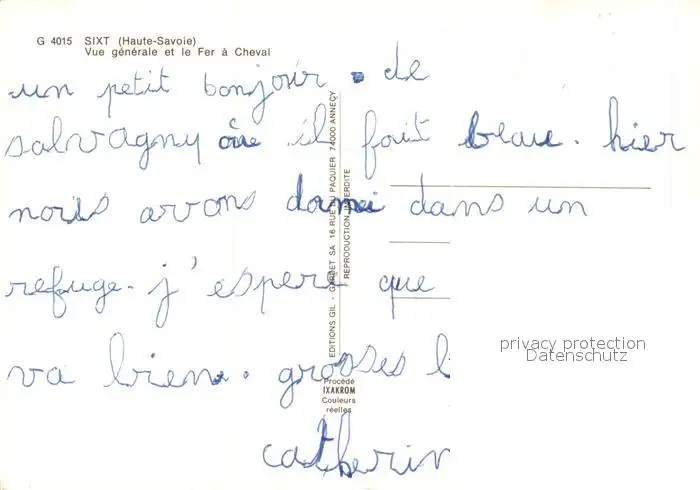 G 4015 SIXT (Haute-Savoie)
Vue générale et le Fer à Cheval
un petit bonjour de
salvagny où il fait beau. hier
nous avons dormi dans un
refuge. j'espere que
va bien. grosses b
catherin
EDITIONS GIL - GARDET SA 16 RUE DU PAQUIER 74000 ANNECY
REPRODUCTION INTERDITE
Procédé
IXAKROM
Couleurs
réelles
privacy protection
Datenschutz